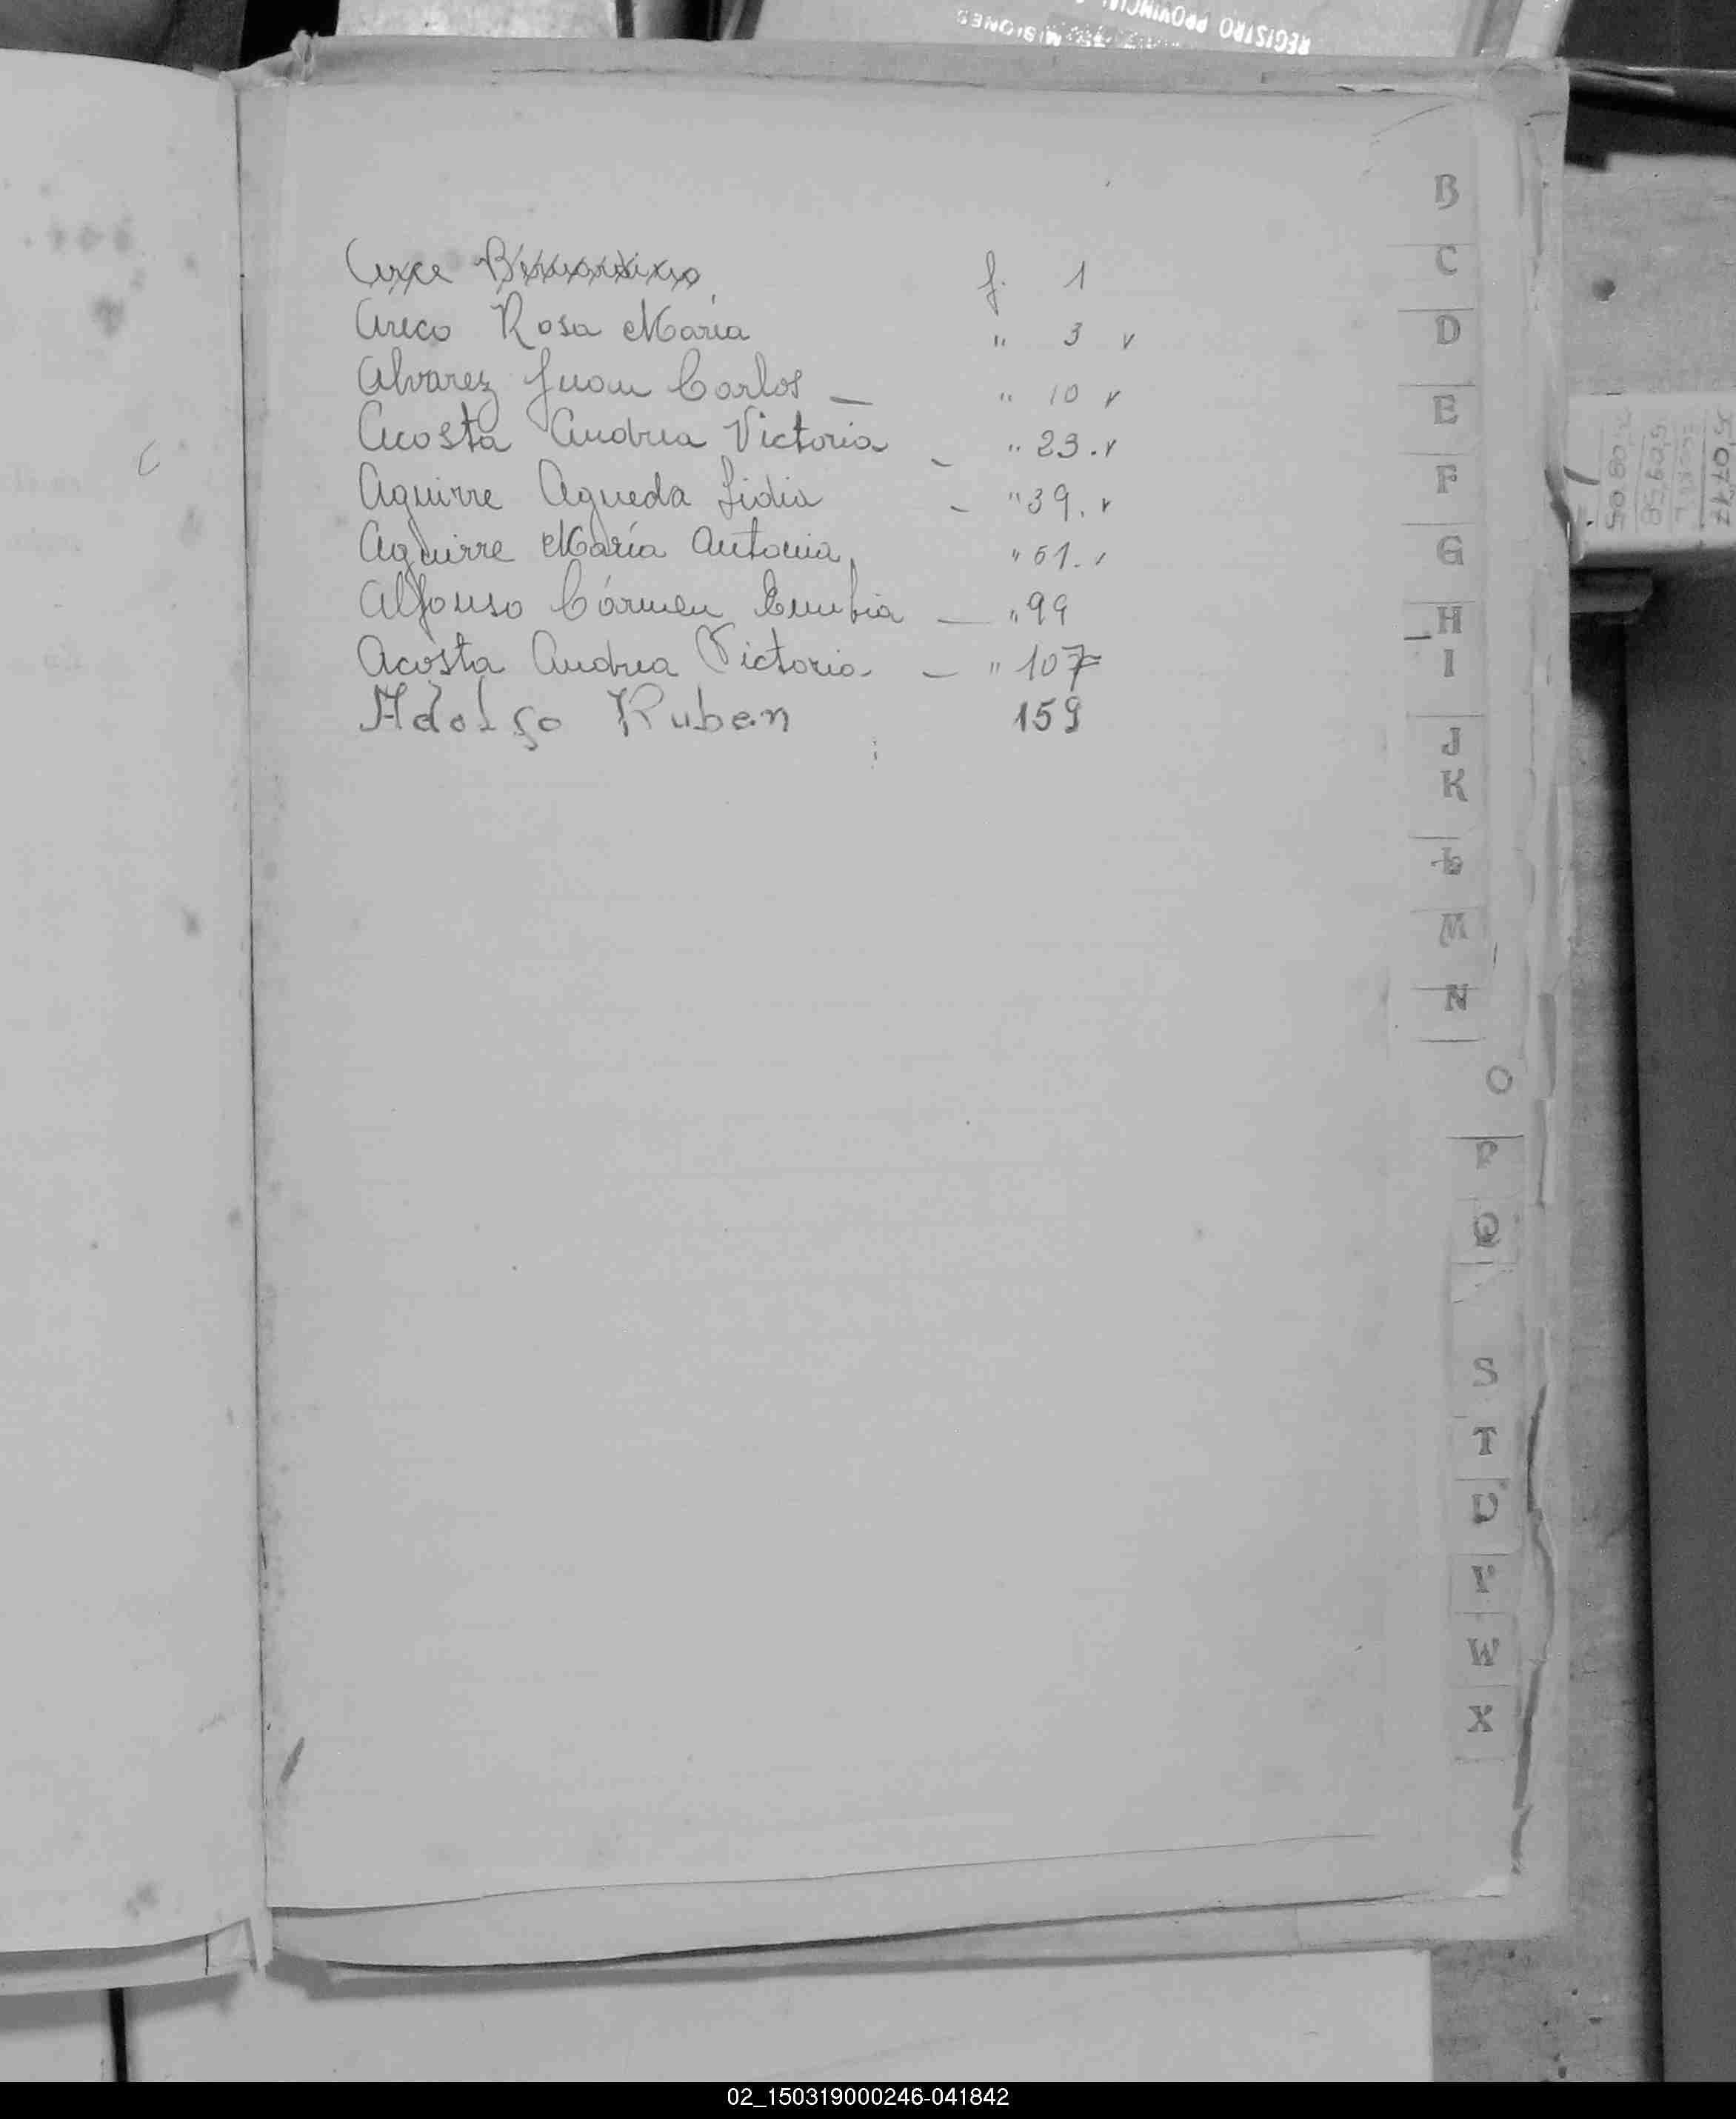 REGISTRO PROVINCIAL
MISIONES
Areco Rosa María " 3 v
Alvarez Juan Carlos — " 10 v
Acosta Andrea Victoria - " 23. v
Aguirre Agueda Lidia - " 39. v
Aguirre María Antonia, " 61. v
Alfonso Cármen — " 99
Acosta Andrea Victoria - — " 107=
Adolfo Ruben 159
f. 1
B
C
D
E
F
G
H
I
J
K
L
M
N
O
P
Q
S
T
U
V
W
X
02_150319000246-041842